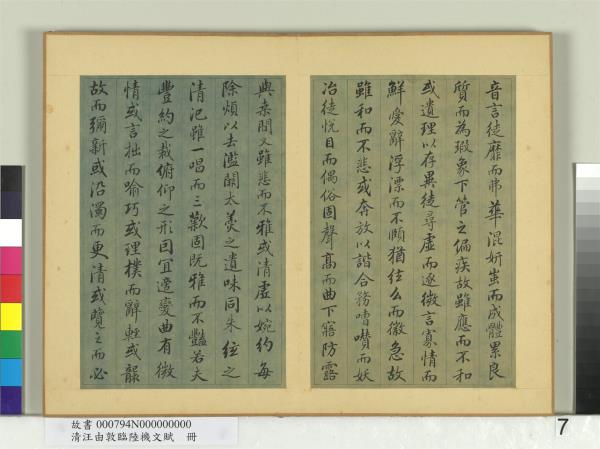 音言徒靡而弗華混妍蚩而成體累良
質而為瑕象下管之偏疾故雖應而不和
或遺理以存異徒尋虛而逐微言寡情而
鮮愛辭浮漂而不歸猶絃么而徽急故
雖和而不悲或奔放以諧合務嘈囋而妖
冶徒悅目而偶俗固聲高而曲下寤防露
與桑間又雖悲而不雅或清虛以婉約每
除煩以去濫闕太羹之遺味同朱絃之
清汜雖一唱而三歎固既雅而不豔若夫
豐約之裁俯仰之形因宜適變曲有微
情或言拙而喻巧或理樸而辭輕或襲
故而彌新或沿濁而更清或覽之而必
故書 000794N000000000
清汪由敦臨陸機文賦 冊
7